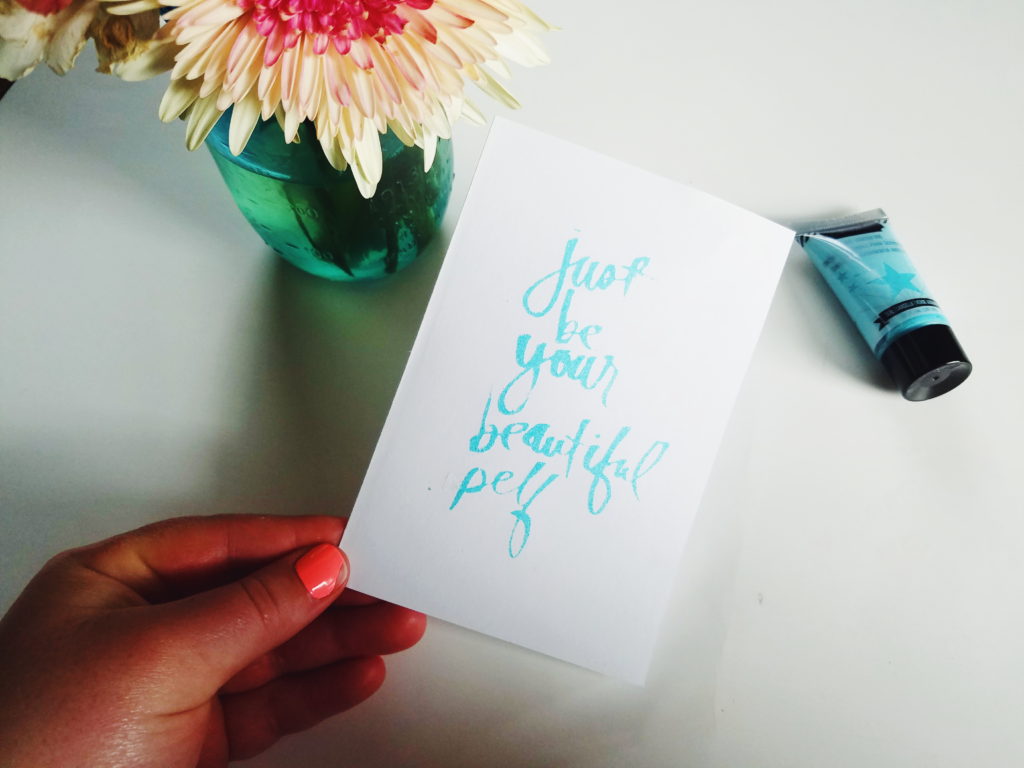 just
be
your
beautiful
self